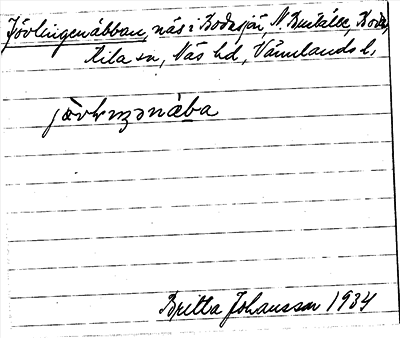 Jövlingenäbban, näs i Bodasjö, N. Bustället, Boda,
Kila sn, Näs hd, Värmlands l.
jövlıŋənäba
Britta Johansson 1934